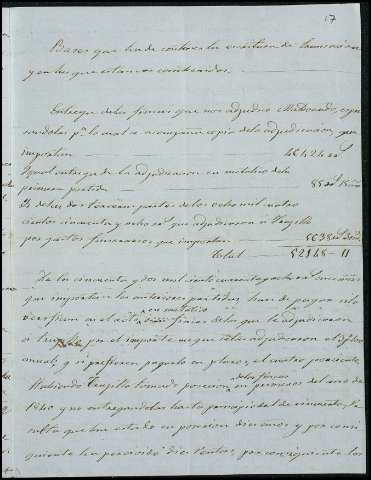 17
Bases que ha de contener la escritura de transaccion
y en las que estamos combenidos.
Entrega de las fincas que nos adjudico Maldonado, expre
sandolas pª lo cual se acompaña copia de la adjudicacion, que
importan 46424 rs
Igual entrega de la adjudicacion en metalico de la
primera partida 85 rs
Y de las dos terceras partes de los ocho mil cuatro
cientos cincuenta y ocho rs que adjudicaron á Trugillo
por gastos funerarios que importan 5638 rs
Total 52148-11
Los cincuenta y dos mil ciento cuarenta y ocho rs once mrs
que importan las anteriores partidas han de pagar
en metalico
ó en fincas de las que le adjudicaron
á Trugillo por el importe en que estas adjudicaron el
anual, y si prefieren pagarlo en plazos, el cuatro por ciento.
Habiendo Trugillo tomado posesion
de las fincas
en primeros del año de
1840 y no entregandolas hasta principios del de cincuenta, re
sulta que ha estado en posesion diez años y por consi
guiente ha percivido diez rentas, por consiguiente los